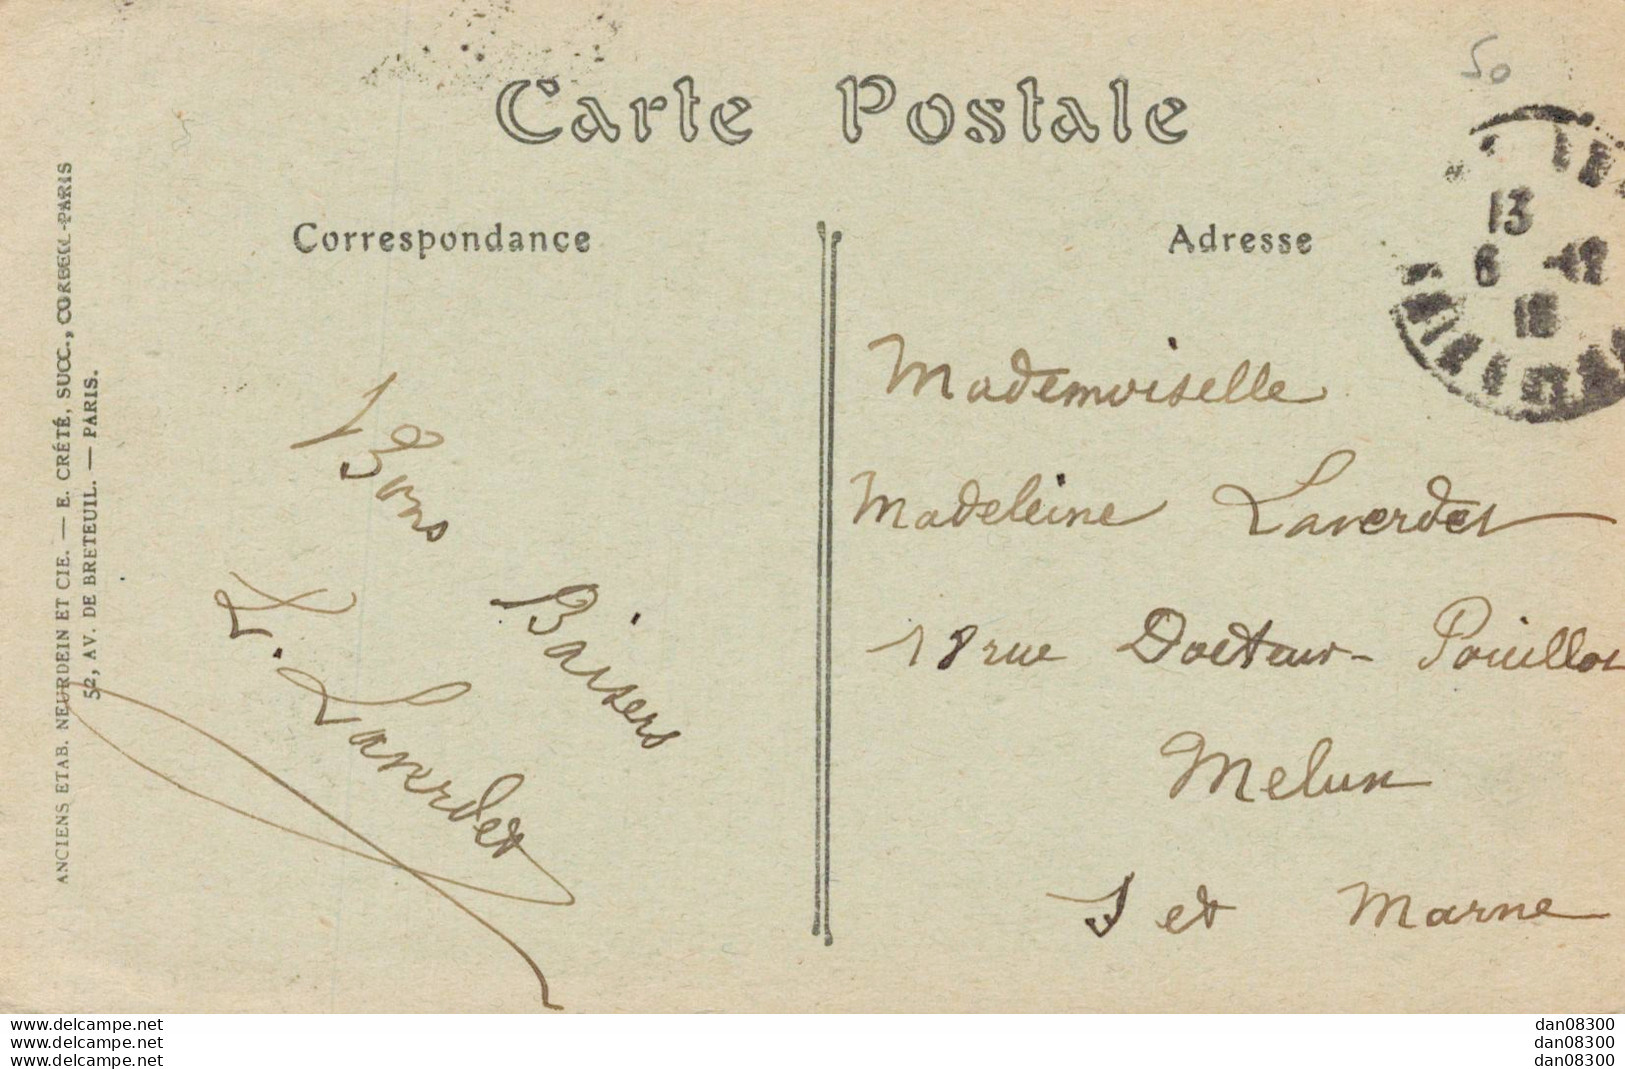 Carte Postale
50
Correspondance
Adresse
13
6 -12
18
Bons
Baisers
L. Laverdet
Mademoiselle
Madeleine Laverdet
18 rue Docteur Pouillot
Melun
S et Marne
ANCIENS ETAB. NEURDEIN ET CIE. — E. CRÉTÉ, SUCC., CORBEIL-PARIS
52, AV. DE BRETEUIL. — PARIS.
www.delcampe.net
www.delcampe.net
www.delcampe.net
dan08300
dan08300
dan08300